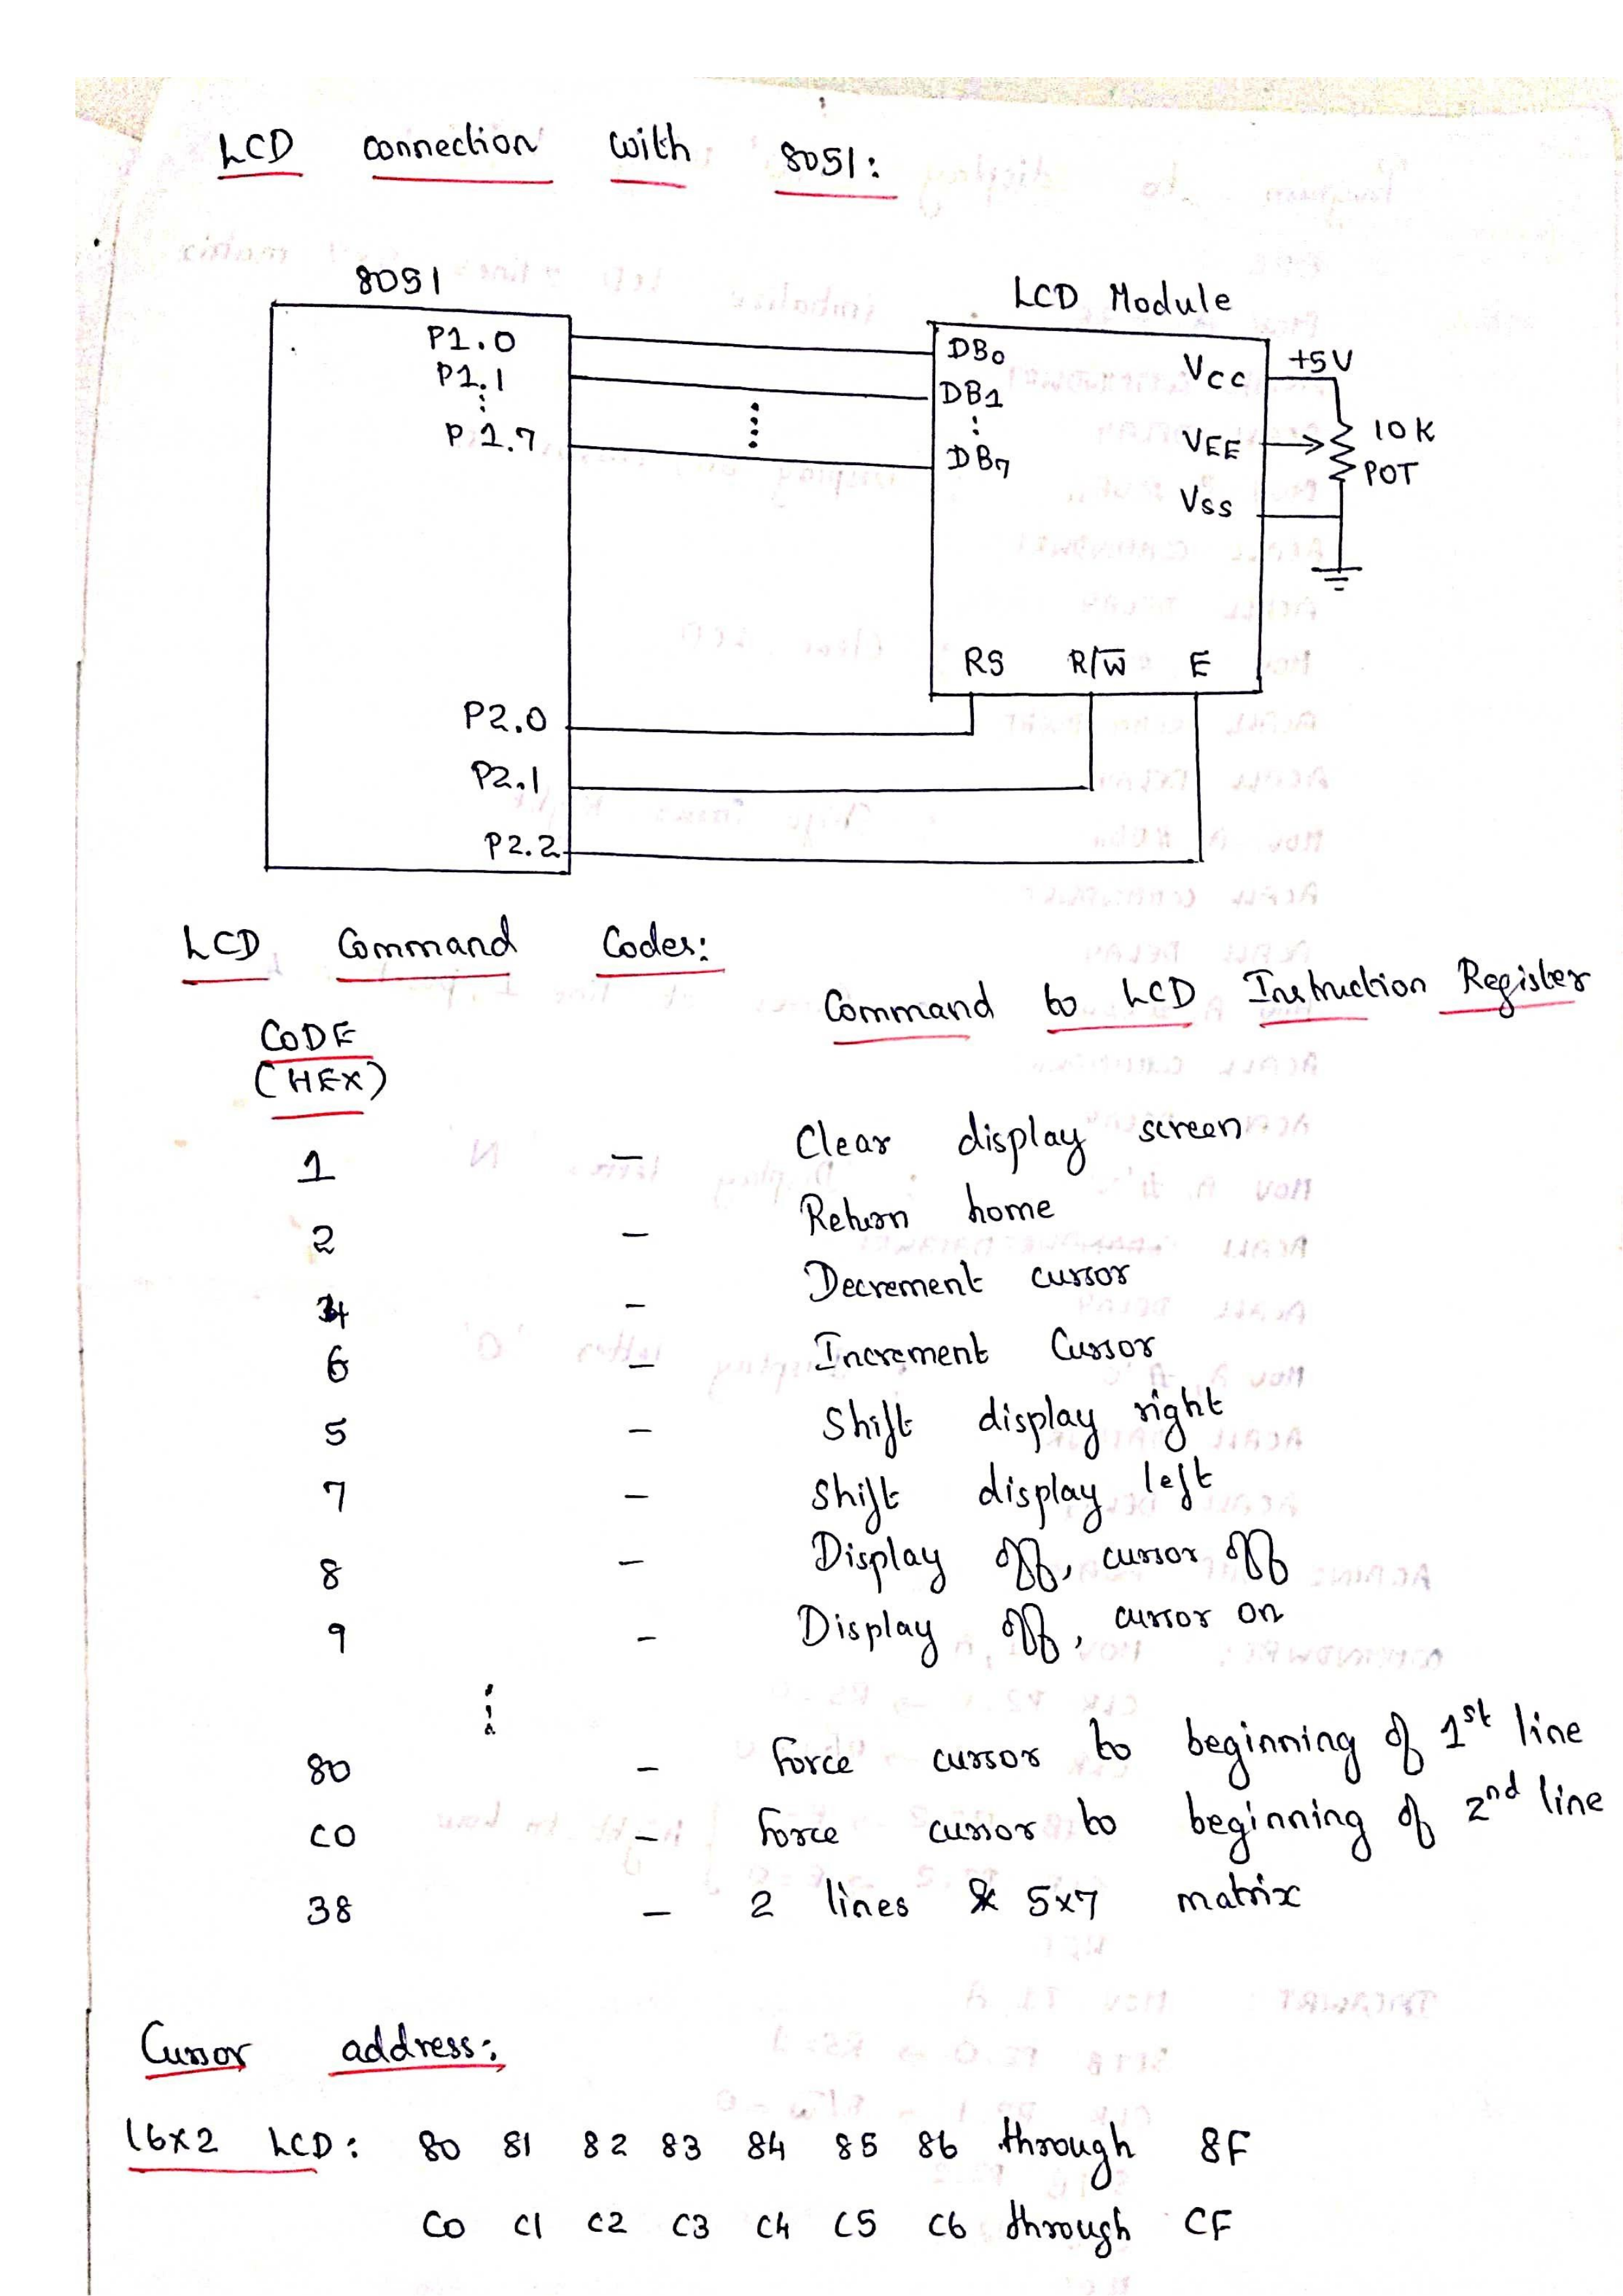 LCD connection with 8051:
8051
LCD Module
P1.0
P1.1
P1.7
DB0
DB1
DB7
VCC
VEE
VSS
+5V
10K
POT
RS R/W̅ E
P2.0
P2.1
P2.2
LCD Command Codes:
CODE
(HEX)
Command to LCD Instruction Register
1 - Clear display screen
2 - Return home
4 - Decrement cursor
6 - Increment Cursor
5 - Shift display right
7 - Shift display left
8 - Display off, cursor off
9 - Display off, cursor on
80 - Force cursor to beginning of 1st line
C0 - Force cursor to beginning of 2nd line
38 - 2 lines & 5x7 matrix
Cursor address:
16x2 LCD: 80 81 82 83 84 85 86 through 8F
C0 C1 C2 C3 C4 C5 C6 through CF